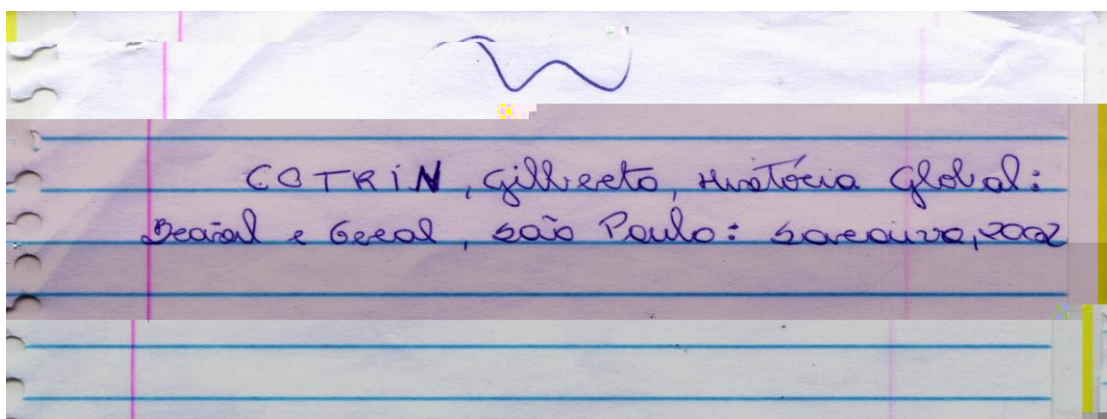 COTRIN, Gilberto, História Global:
Brasil e Geral, São Paulo: Saraiva, 2002